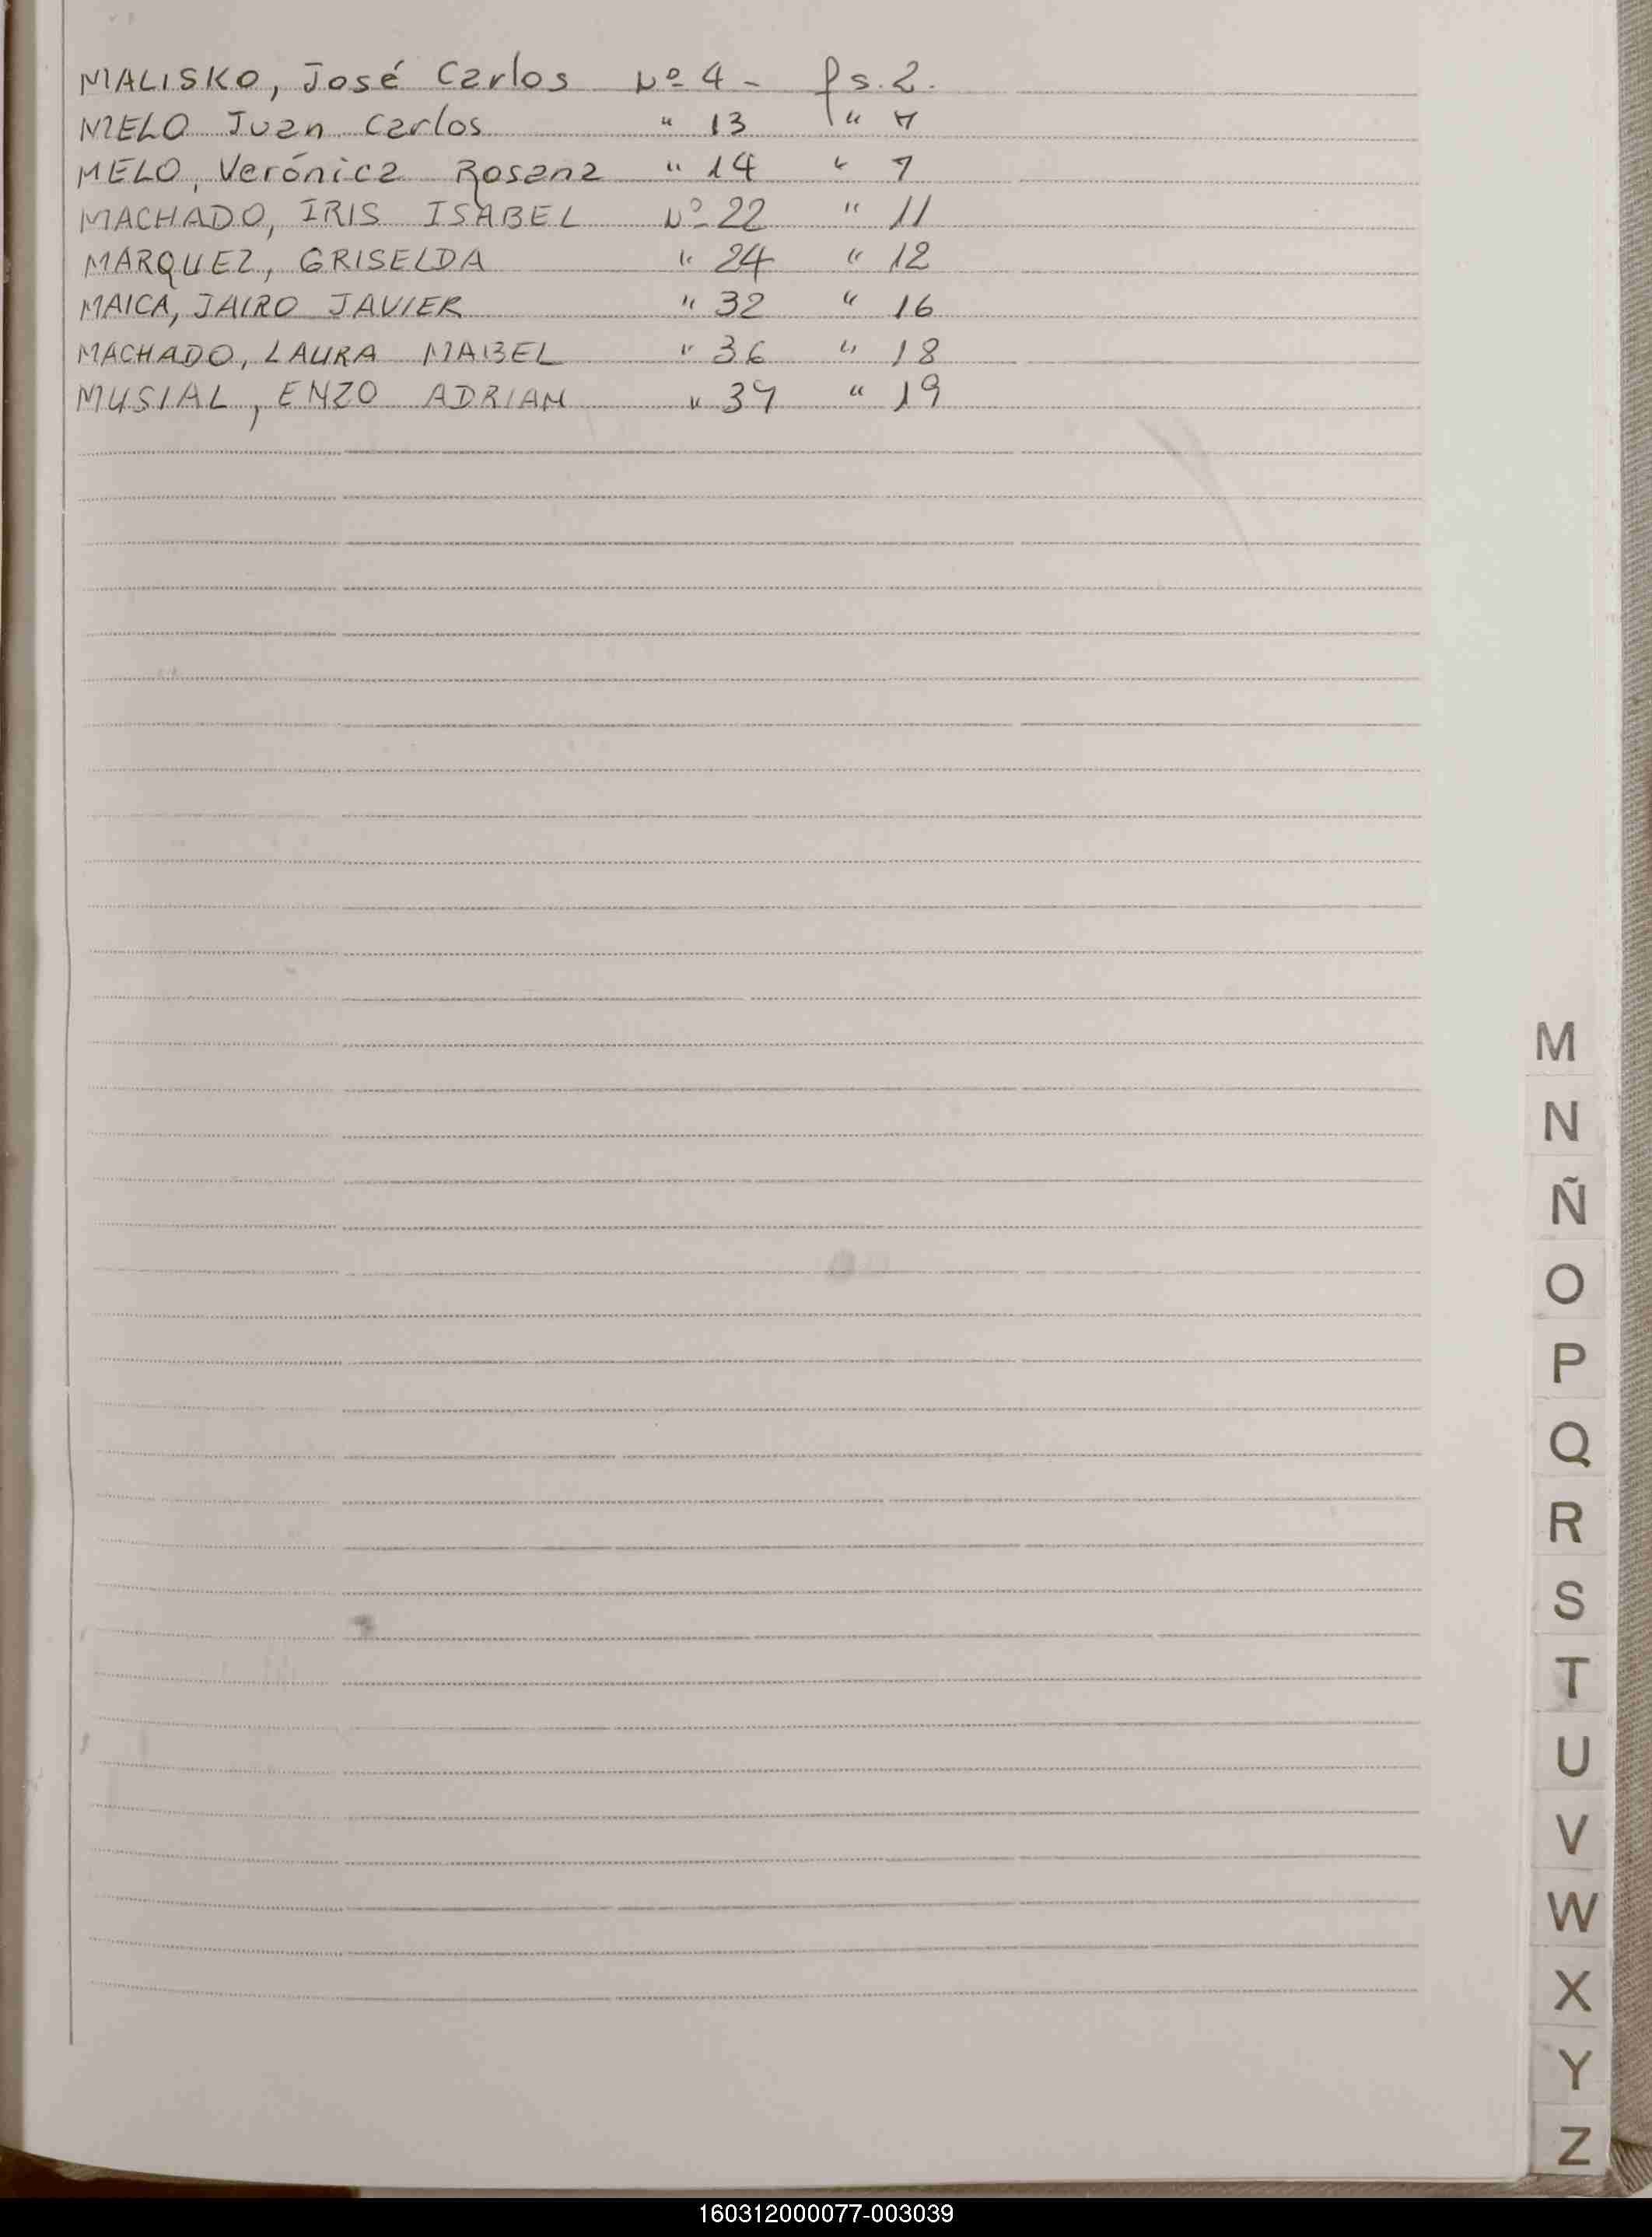 MALISKO, José Carlos Nº 4 - fs. 2.
MELO Juan Carlos " 13 " 7
MELO, Verónica Rosana " 14 " 7
MACHADO, IRIS ISABEL Nº 22 " 11
MARQUEZ, GRISELDA " 24 " 12
MAICA, JAIRO JAVIER " 32 " 16
MACHADO, LAURA MABEL " 36 " 18
MUSIAL, ENZO ADRIAN " 37 " 19
M
N
Ñ
O
P
Q
R
S
T
U
V
W
X
Y
Z
160312000077-003039